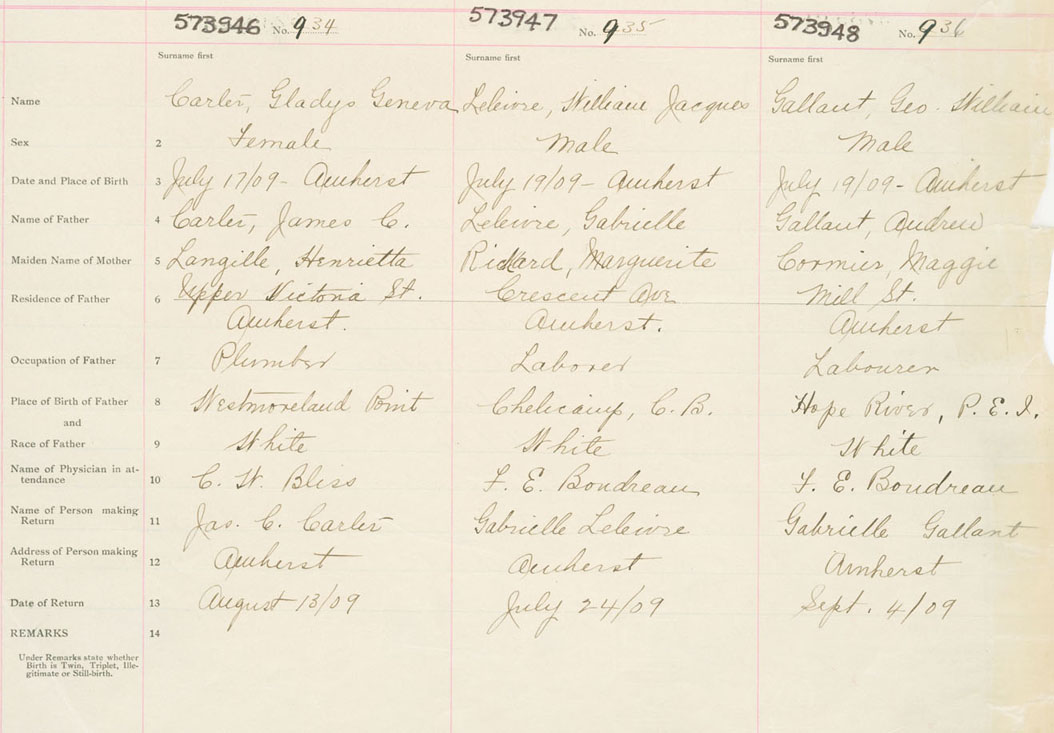 573946 No. 934 573947 No. 935 573948 No. 936
Surname first Surname first Surname first
Name Carter, Gladys Geneva Leleivre, William Jacques Gallant, Geo. William
Sex 2 Female Male Male
Date and Place of Birth 3 July 17/09 - Amherst July 19/09 - Amherst July 19/09 - Amherst
Name of Father 4 Carter, James C. Leleivre, Gabrielle Gallant, Andrew
Maiden Name of Mother 5 Langille, Henrietta Rickard, Marguerite Cormier, Maggie
Residence of Father 6 Upper Victoria St. Crescent Ave Mill St.
Amherst. Amherst. Amherst
Occupation of Father 7 Plumber Laborer Labourer
Place of Birth of Father 8 Westmoreland Point Chelicamp, C. B. Hope River, P. E. I.
and
Race of Father 9 White White White
Name of Physician in at-
tendance 10 C. W. Bliss F. E. Boudreau F. E. Boudreau
Name of Person making
Return 11 Jas. C. Carter Gabrielle Leleivre Gabrielle Gallant
Address of Person making
Return 12 Amherst Amherst Amherst
Date of Return 13 August 13/09 July 24/09 Sept. 4/09
REMARKS 14
Under Remarks state whether
Birth is Twin, Triplet, Ille-
gitimate or Still-birth.